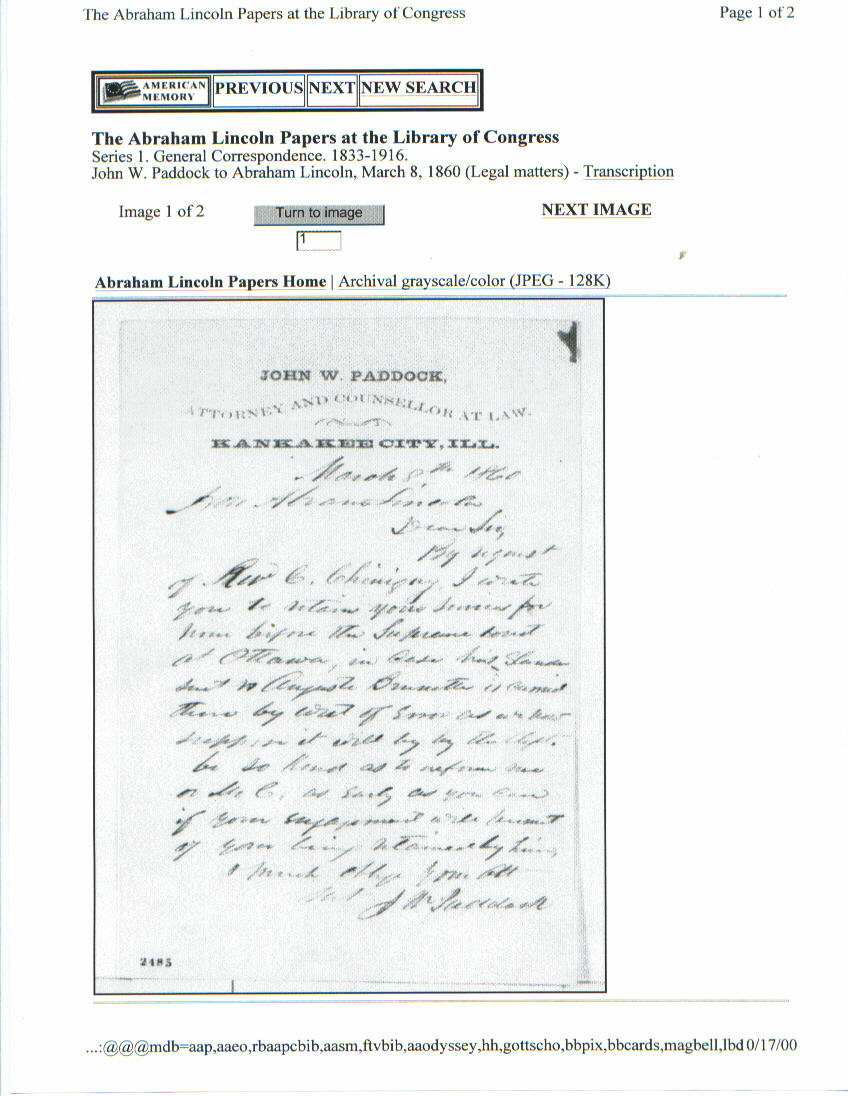 The Abraham Lincoln Papers at the Library of Congress
Page 1 of 2
AMERICAN MEMORY PREVIOUS NEXT NEW SEARCH
The Abraham Lincoln Papers at the Library of Congress
Series 1. General Correspondence. 1833-1916.
John W. Paddock to Abraham Lincoln, March 8, 1860 (Legal matters) - Transcription
Image 1 of 2
Turn to image
NEXT IMAGE
1
Abraham Lincoln Papers Home | Archival grayscale/color (JPEG - 128K)
JOHN W. PADDOCK,
ATTORNEY AND COUNSELLOR AT LAW.
KANKAKEE CITY, ILL.
March 8th 1860
Hon Abram Lincoln
Dear Sir,
By request
of Rev C. Chiniquy, I write
you to retain your services for
him before the Supreme Court
at Ottawa, in case
suit Auguste is carried
there by writ of Error as we now
suppose it will by the
be so kind as to inform me
or Mr C. as early as you can
if your engagement will
of your being retained by him,
& much oblige Your
J W Paddock
2485
...:@@@mdb=aap,aaeo,rbaapcbib,aasm,ftvbib,aaodyssey,hh,gottscho,bbpix,bbcards,magbell,lbd 0/17/00